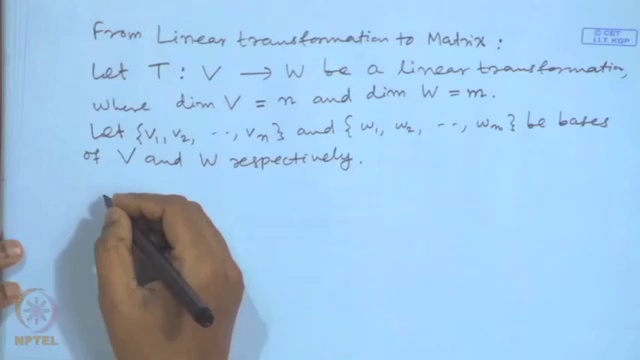 From Linear transformation to Matrix:
© CET
I.I.T. KGP
Let T: V → W be a linear transformation,
where dim V = n and dim W = m.
Let {v₁, v₂, ..., vₙ} and {w₁, w₂, ..., wₘ} be bases
of V and W respectively.
NPTEL